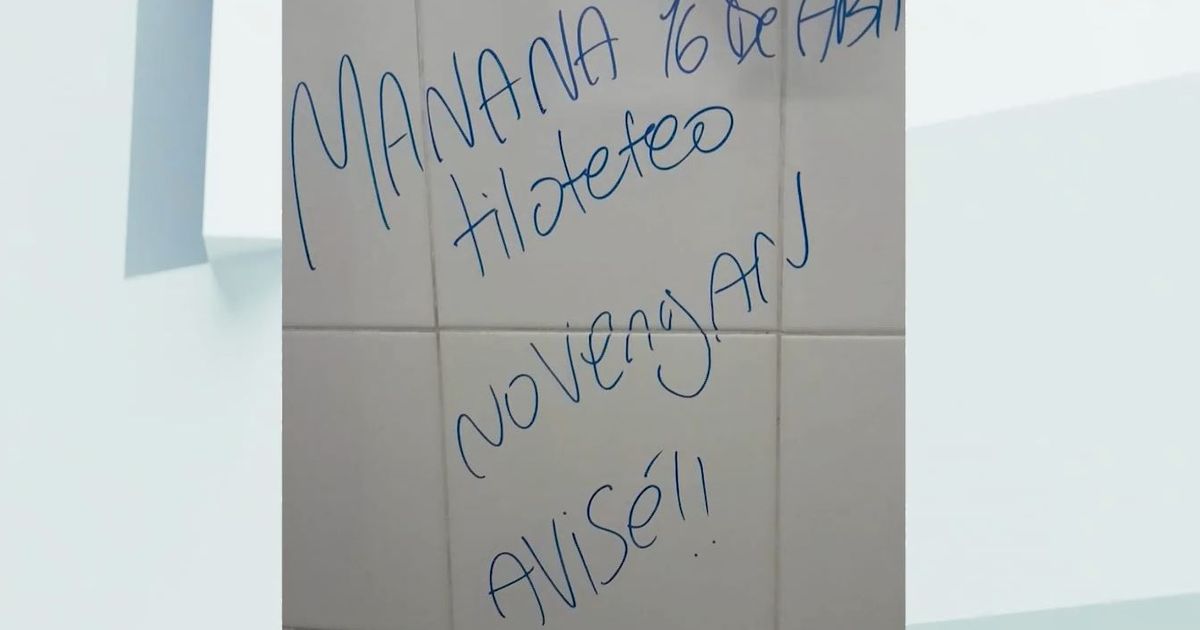 MANANA 16 De ABri
tiloteteo
NO VengAN
AViSé!!